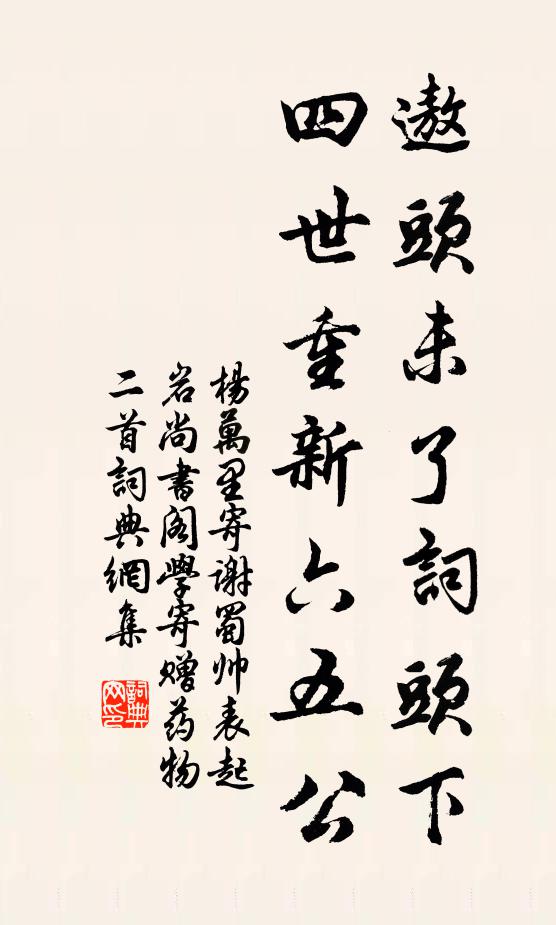 遨頭未了詞頭下
四世重新六五公
楊萬里寄谢蜀帅袁起
岩尚書阁學寄赠药物
二首詞典網集
詞典
网印